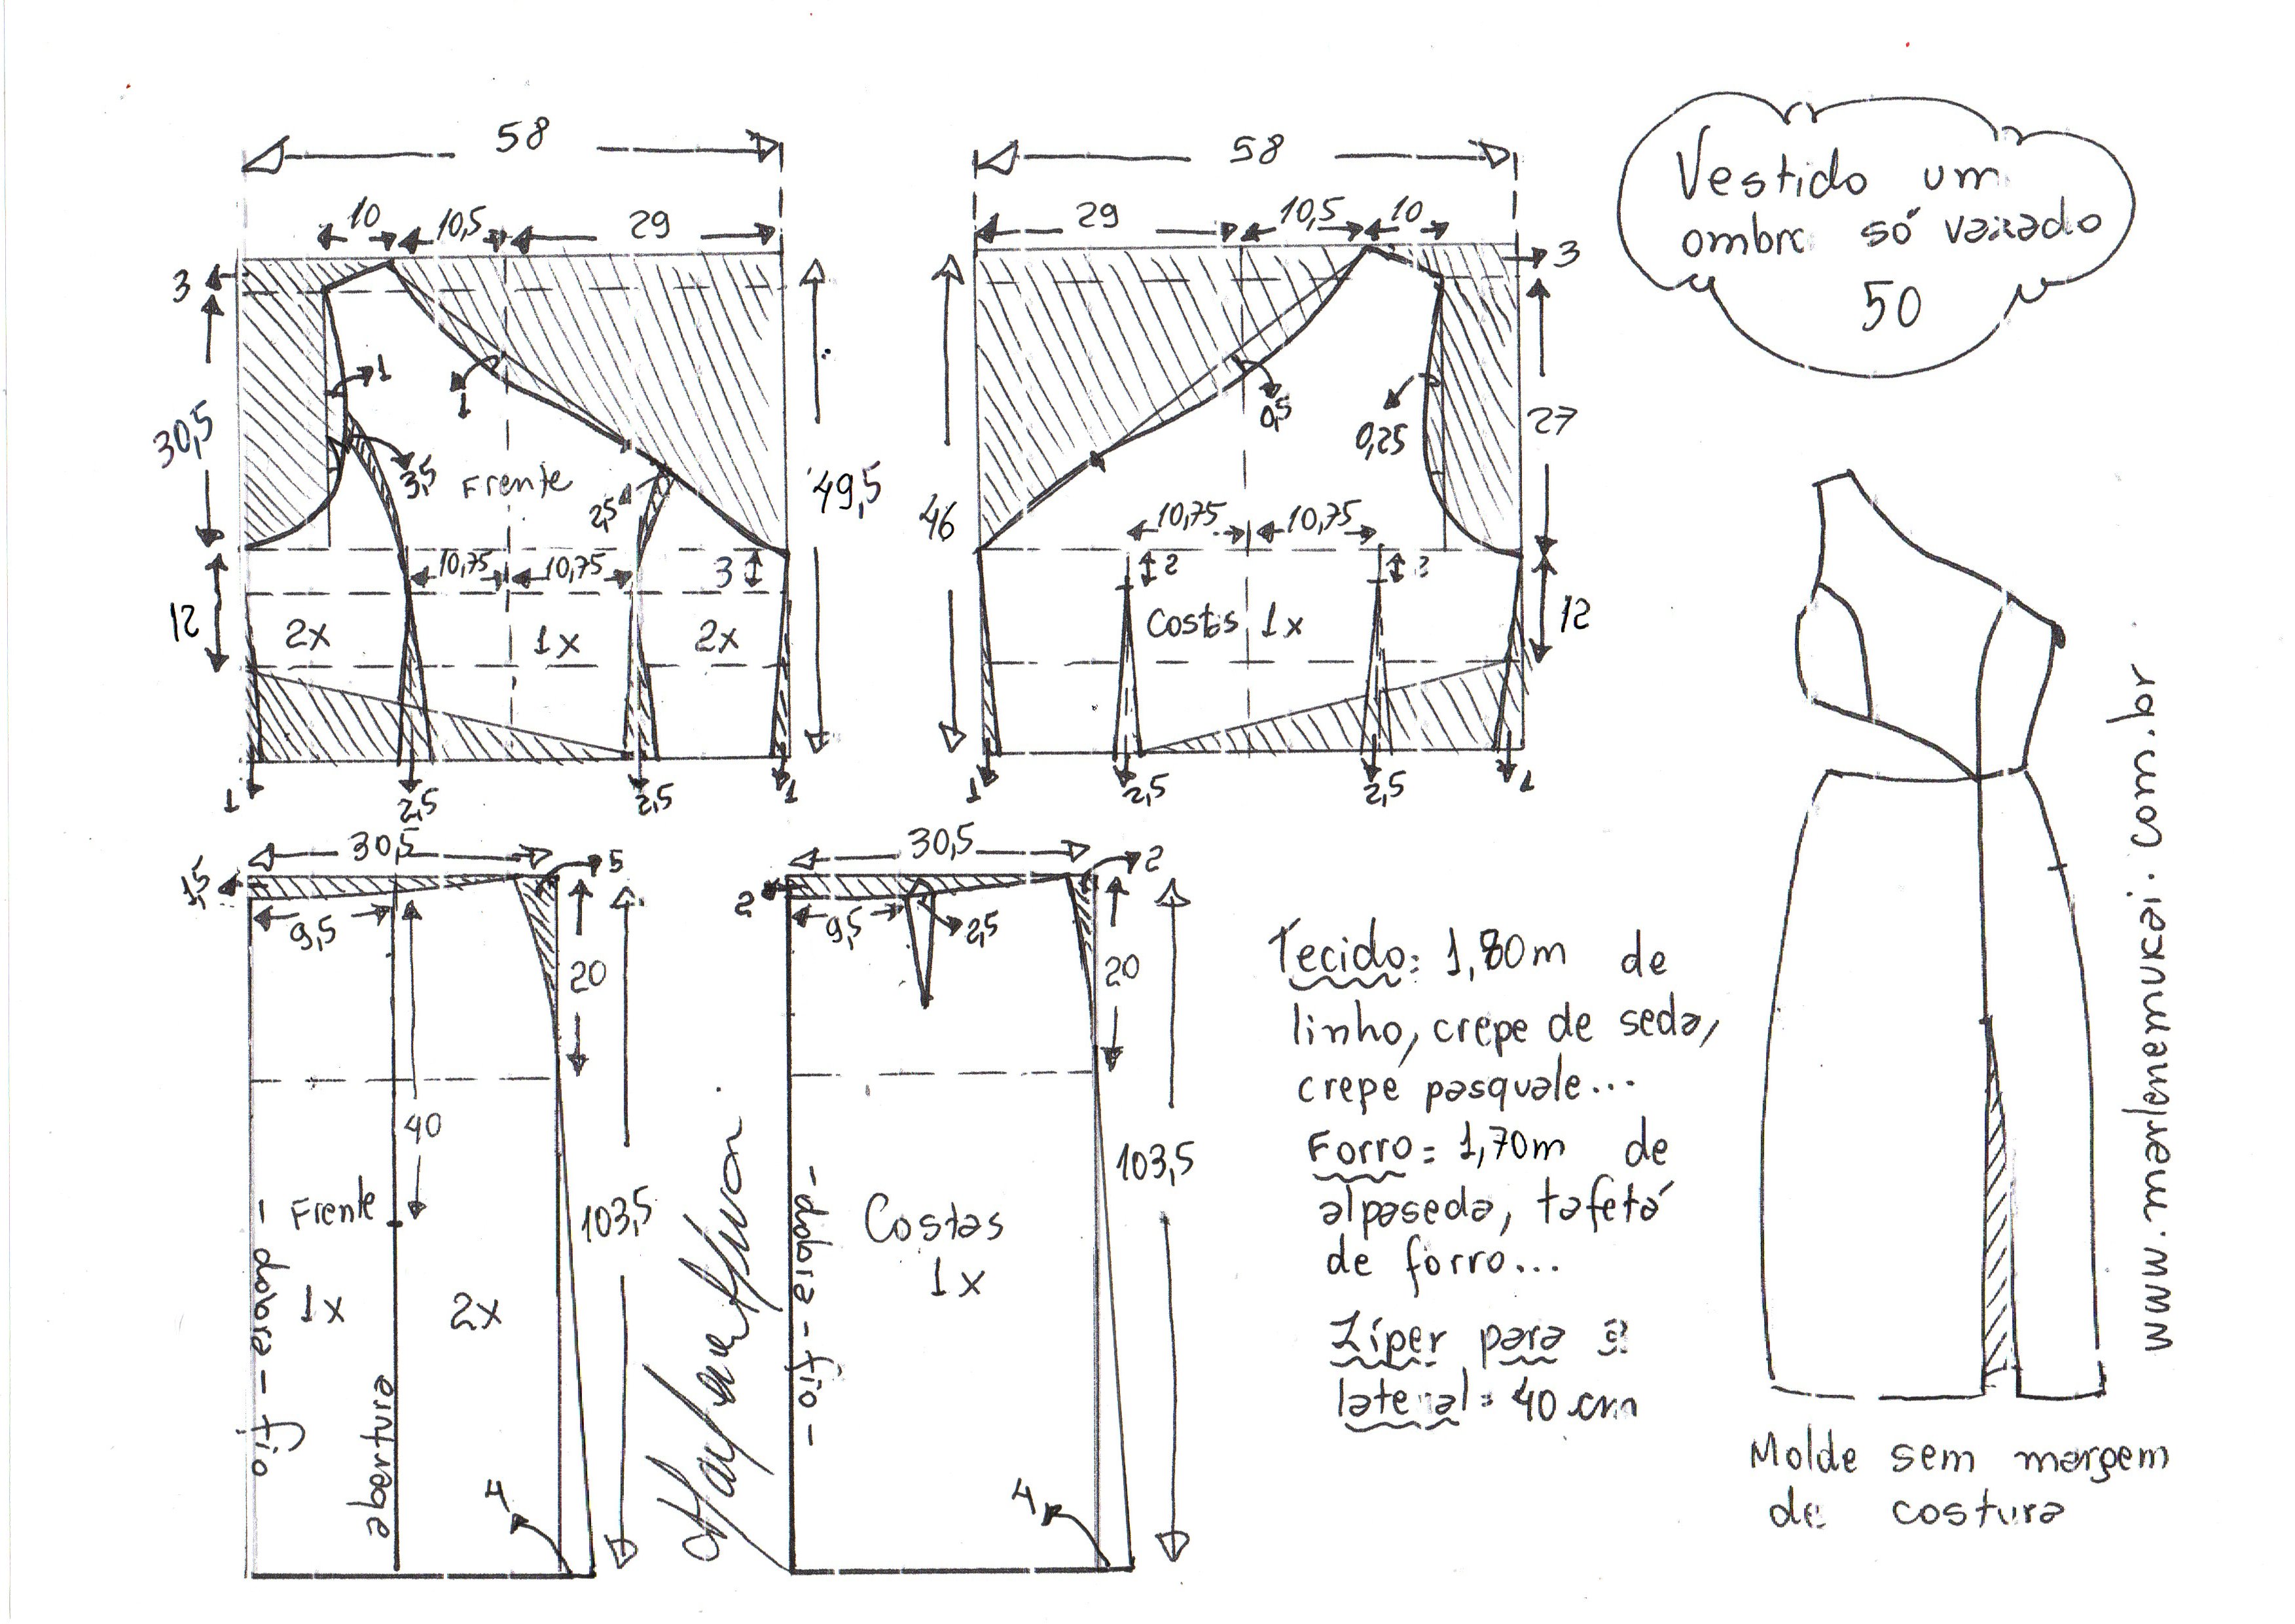 Vestido um
ombro só vazado
50
58
10
10,5
29
3
30,5
12
1
1
3,5
Frente
2,5
49,5
10,75
10,75
3
2x
1x
2x
1
2,5
2,5
1
58
29
10,5
10
3
46
0,5
0,25
27
10,75
10,75
2
2
Costas 1x
12
1
2,5
2,5
1
30,5
1,5
5
9,5
20
40
Frente
1x
2x
103,5
- dobra - fio
abertura
4
30,5
2
2
9,5
2,5
20
Costas
1x
103,5
- dobra - fio -
4
Tecido: 1,80m de
linho, crepe de seda,
crepe pasquale...
Forro = 1,70m de
alpaseda, tafetá
de forro...
Zíper para a
lateral = 40 cm
www.marlenemukai.com.br
Molde sem margem
de costura